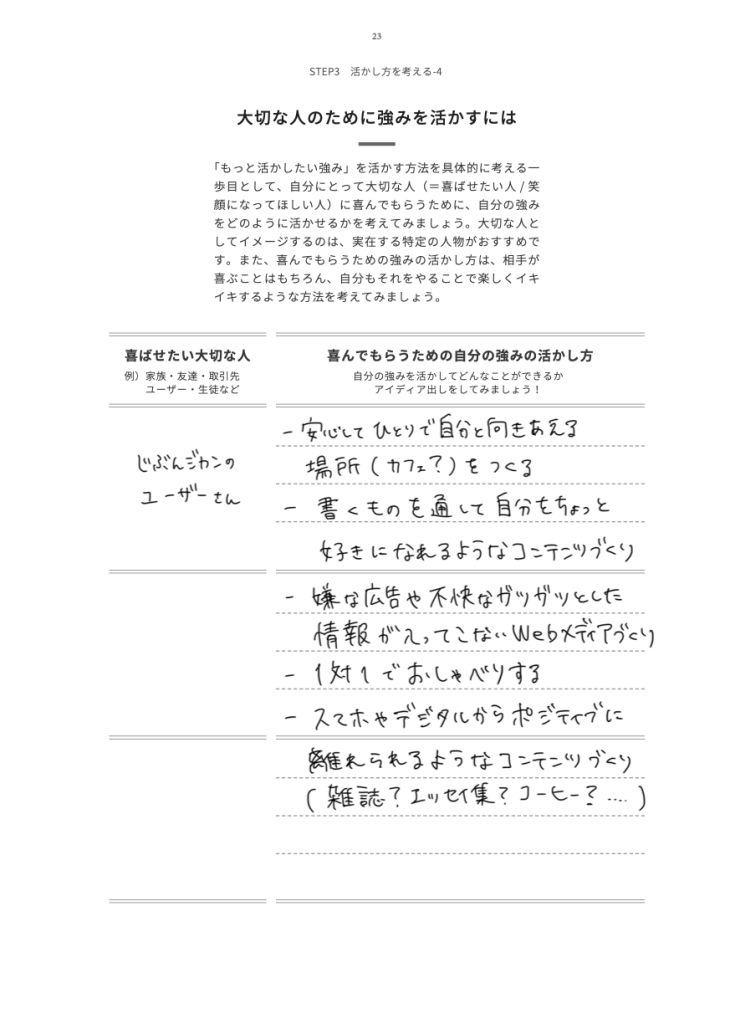 23
STEP3　活かし方を考える-4
大切な人のために強みを活かすには
「もっと活かしたい強み」を活かす方法を具体的に考える一
歩目として、自分にとって大切な人（＝喜ばせたい人 / 笑
顔になってほしい人）に喜んでもらうために、自分の強み
をどのように活かせるかを考えてみましょう。大切な人と
してイメージするのは、実在する特定の人物がおすすめで
す。また、喜んでもらうための強みの活かし方は、相手が
喜ぶことはもちろん、自分もそれをやることで楽しくイキ
イキするような方法を考えてみましょう。
喜ばせたい大切な人
例）家族・友達・取引先
ユーザー・生徒など
じぶんジカンの
ユーザーさん
喜んでもらうための自分の強みの活かし方
自分の強みを活かしてどんなことができるか
アイディア出しをしてみましょう！
- 安心して ひとりで自分と向きあえる
場所（カフェ？）をつくる
- 書くものを通して自分をちょっと
好きになれるようなコンテンツづくり
- 嫌な広告や不快なガツガツとした
情報が入ってこないWebメディアづくり
- 1対1でおしゃべりする
- スマホやデジタルからポジティブに
離れられるようなコンテンツづくり
（雑誌？エッセイ集？コーヒー？....）